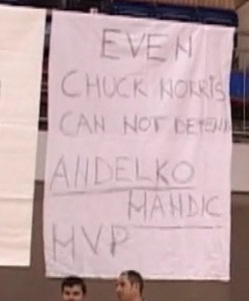 EVEN
CHUCK NORRIS
CAN NOT DEFEND
ANDELKO
MANDIC
MVP